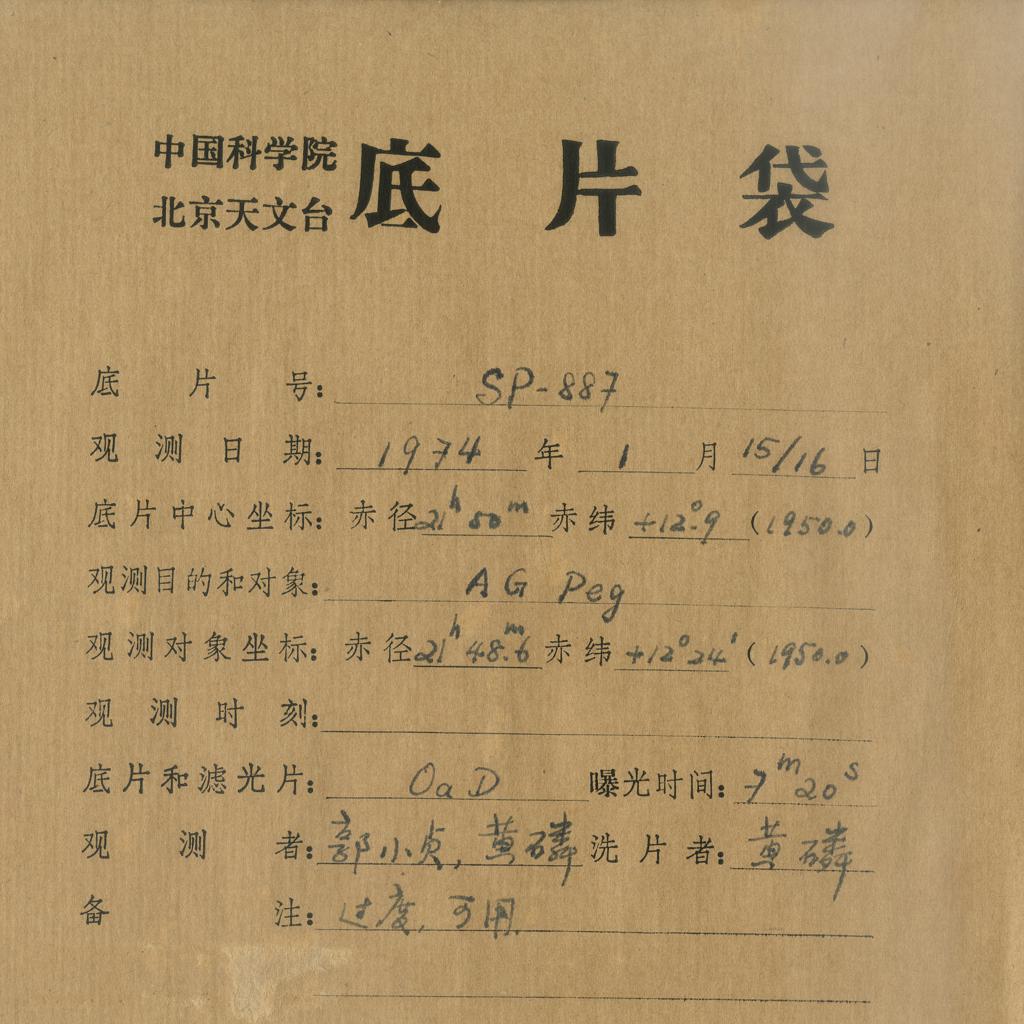 中国科学院
北京天文台
底片袋
底片号: SP-887
观测日期: 1974 年 1 月 15/16 日
底片中心坐标: 赤径 21h 50m 赤纬 +12°.9 (1950.0)
观测目的和对象: AG Peg
观测对象坐标: 赤径 21h 48m.6 赤纬 +12°24′ (1950.0)
观测时刻:
底片和滤光片: OaD 曝光时间: 7m 20s
观测者: 郭小贞, 黄磷 洗片者: 黄磷
备注: 过度, 可用.